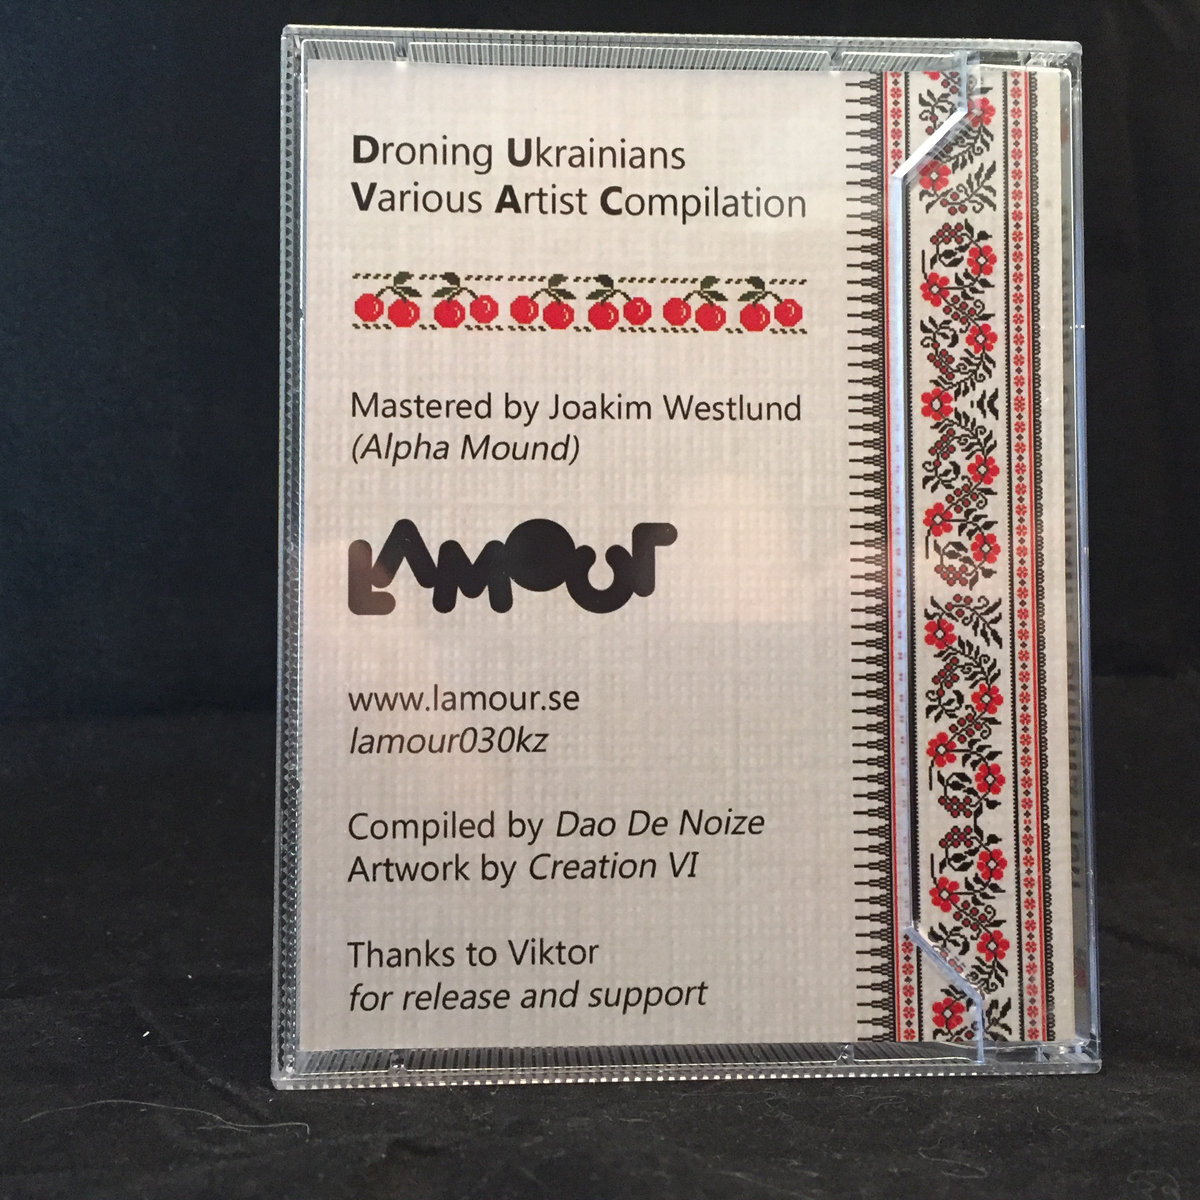 Droning Ukrainians
Various Artist Compilation
Mastered by Joakim Westlund
(Alpha Mound)
LAMOUr
www.lamour.se
lamour030kz
Compiled by Dao De Noize
Artwork by Creation VI
Thanks to Viktor
for release and support